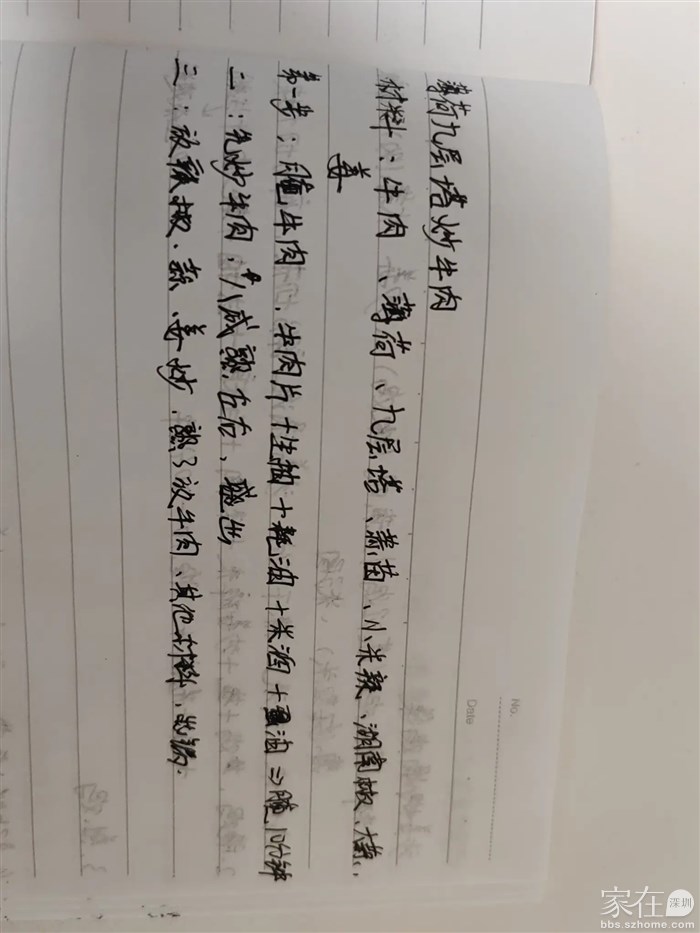 No.
Date
薄荷九层塔炒牛肉
材料：牛肉、薄荷、九层塔、蒜苗、小米辣、湖南椒、大蒜、
姜
第一步：腌牛肉、牛肉片＋生抽＋耗油＋米酒＋油⇒腌10分钟
二：先炒牛肉，八成熟左右、盛出
三：放辣椒、蒜、姜炒、熟了放牛肉、其他材料、出锅.
家在
深圳
bbs.szhome.com